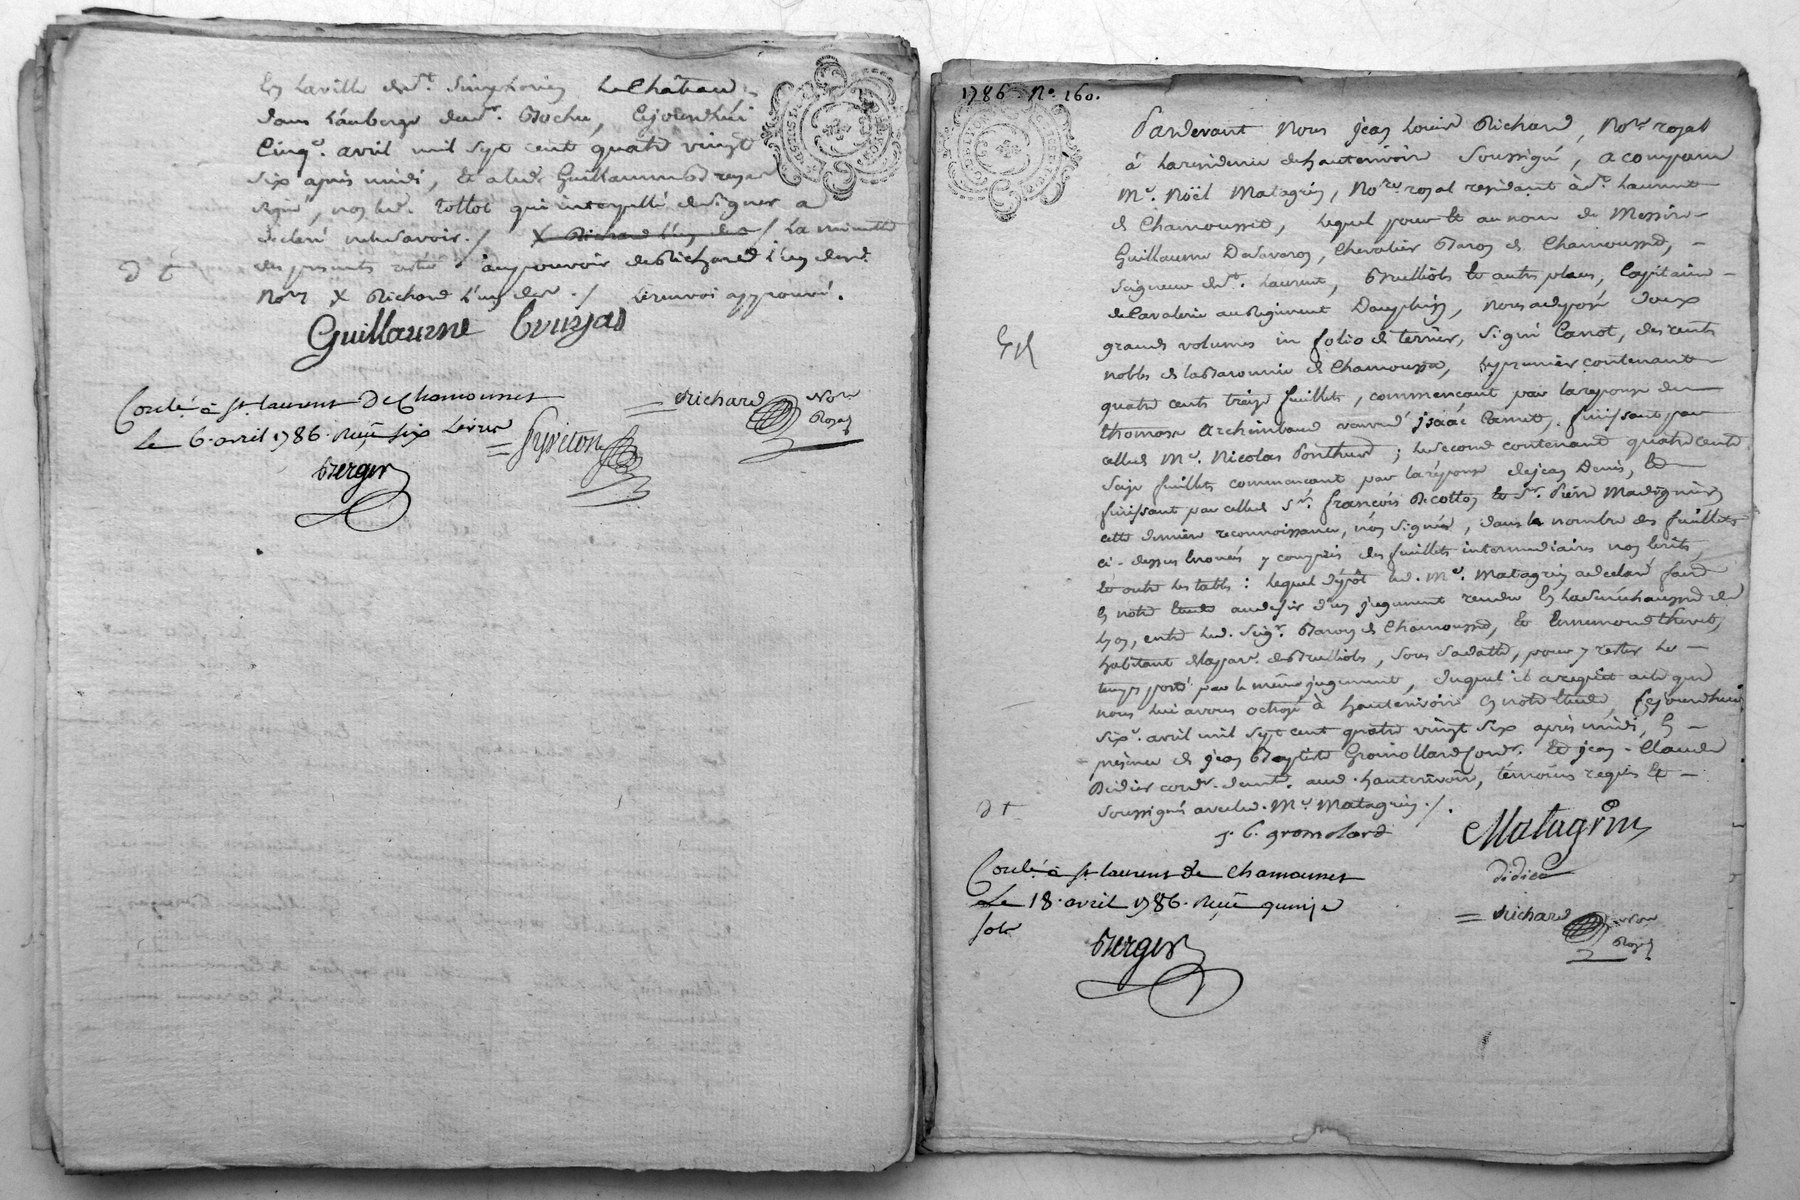 En la ville de St. Simphorien Le Château
dans l'auberge du Sr. Bochu, Cejourdhui
Cinqe. avril mil sept cent quatre vingt
six après midi, Et a led. Guillaume
signé, non led. Tollot qui interpellé de signer a
declaré ne le savoir ./ X Richard l'un des / La minutte
des presents restée au pouvoir de Richard l'un desd.
Nores X Richard l'un des ./ Le renvoi approuvé.
Guillaume
Conlé à St. laurent De Chamousset
le 6 avril 1786. Reçu six Livres
Berger
Richard Nore
Royal
1786. No. 160.
Pardevant Nous jean Louis Richard, Nore. royal
à la residence de hauterivoir Soussigné, a comparu
Me. Noël Matagrin, Nore. royal residant à St. Laurent
de Chamousset, lequel pour et au nom de Messire
Guillaume De Savaron, Chevalier Baron de Chamousset,
Seigneur de St. Laurent, Brulliols et autres places, Capitaine
de Cavalerie au Regiment Dauphin, nous a deposé deux
grands volumes in folio de terrier, Signé Carrot, des rentes
nobles de la Baronnie de Chamousset, le premier contenant
quatre cents treize feuillets, commençant par la reponse de
thomase Archimbaud veuve d'jsaac Carret, finissant par
celle de Me. Nicolas Ponthus ; le second contenant quatre cents
seize feuillets commençant par la réponse de jean Denis, et
finissant par celle de Sr. françois Decotton et Sr. Pierre
cette derniere reconnoissance, non signée, dans le nombre des feuillets
ci-dessus enoncés y compris des feuillets intermediaires non Ecrits,
et outre les tables : lequel dépôt led. Me. Matagrin a declaré faire
En notre Etude au desir d'un jugement rendu En la Senéchaussée de
Lyon, entre led. Seigr. Baron de Chamousset, et Ennemond thevenet,
habitant de la parr. de Brulliols, sous sa datte, pour y rester le
temps porté par le même jugement, duquel il a requis acte que
nous lui avons octroyé à hauterivoir En notre Etude, Cejourdhui
sixe. avril mil sept cent quatre vingt six après midi, En
présence de jean Baptiste Gromollard Cordr. Et jean-Claude
Didier cordr. demts. aud. hauterivoir, témoins requis Et
Soussignés avec led. Me. Matagrin ./.
J. B. gromolard Matagrin
didier
Conlé à St. laurent de Chamousset
Le 18 avril 1786. Reçu quinze
sols
Berger
Richard Nore
Royal